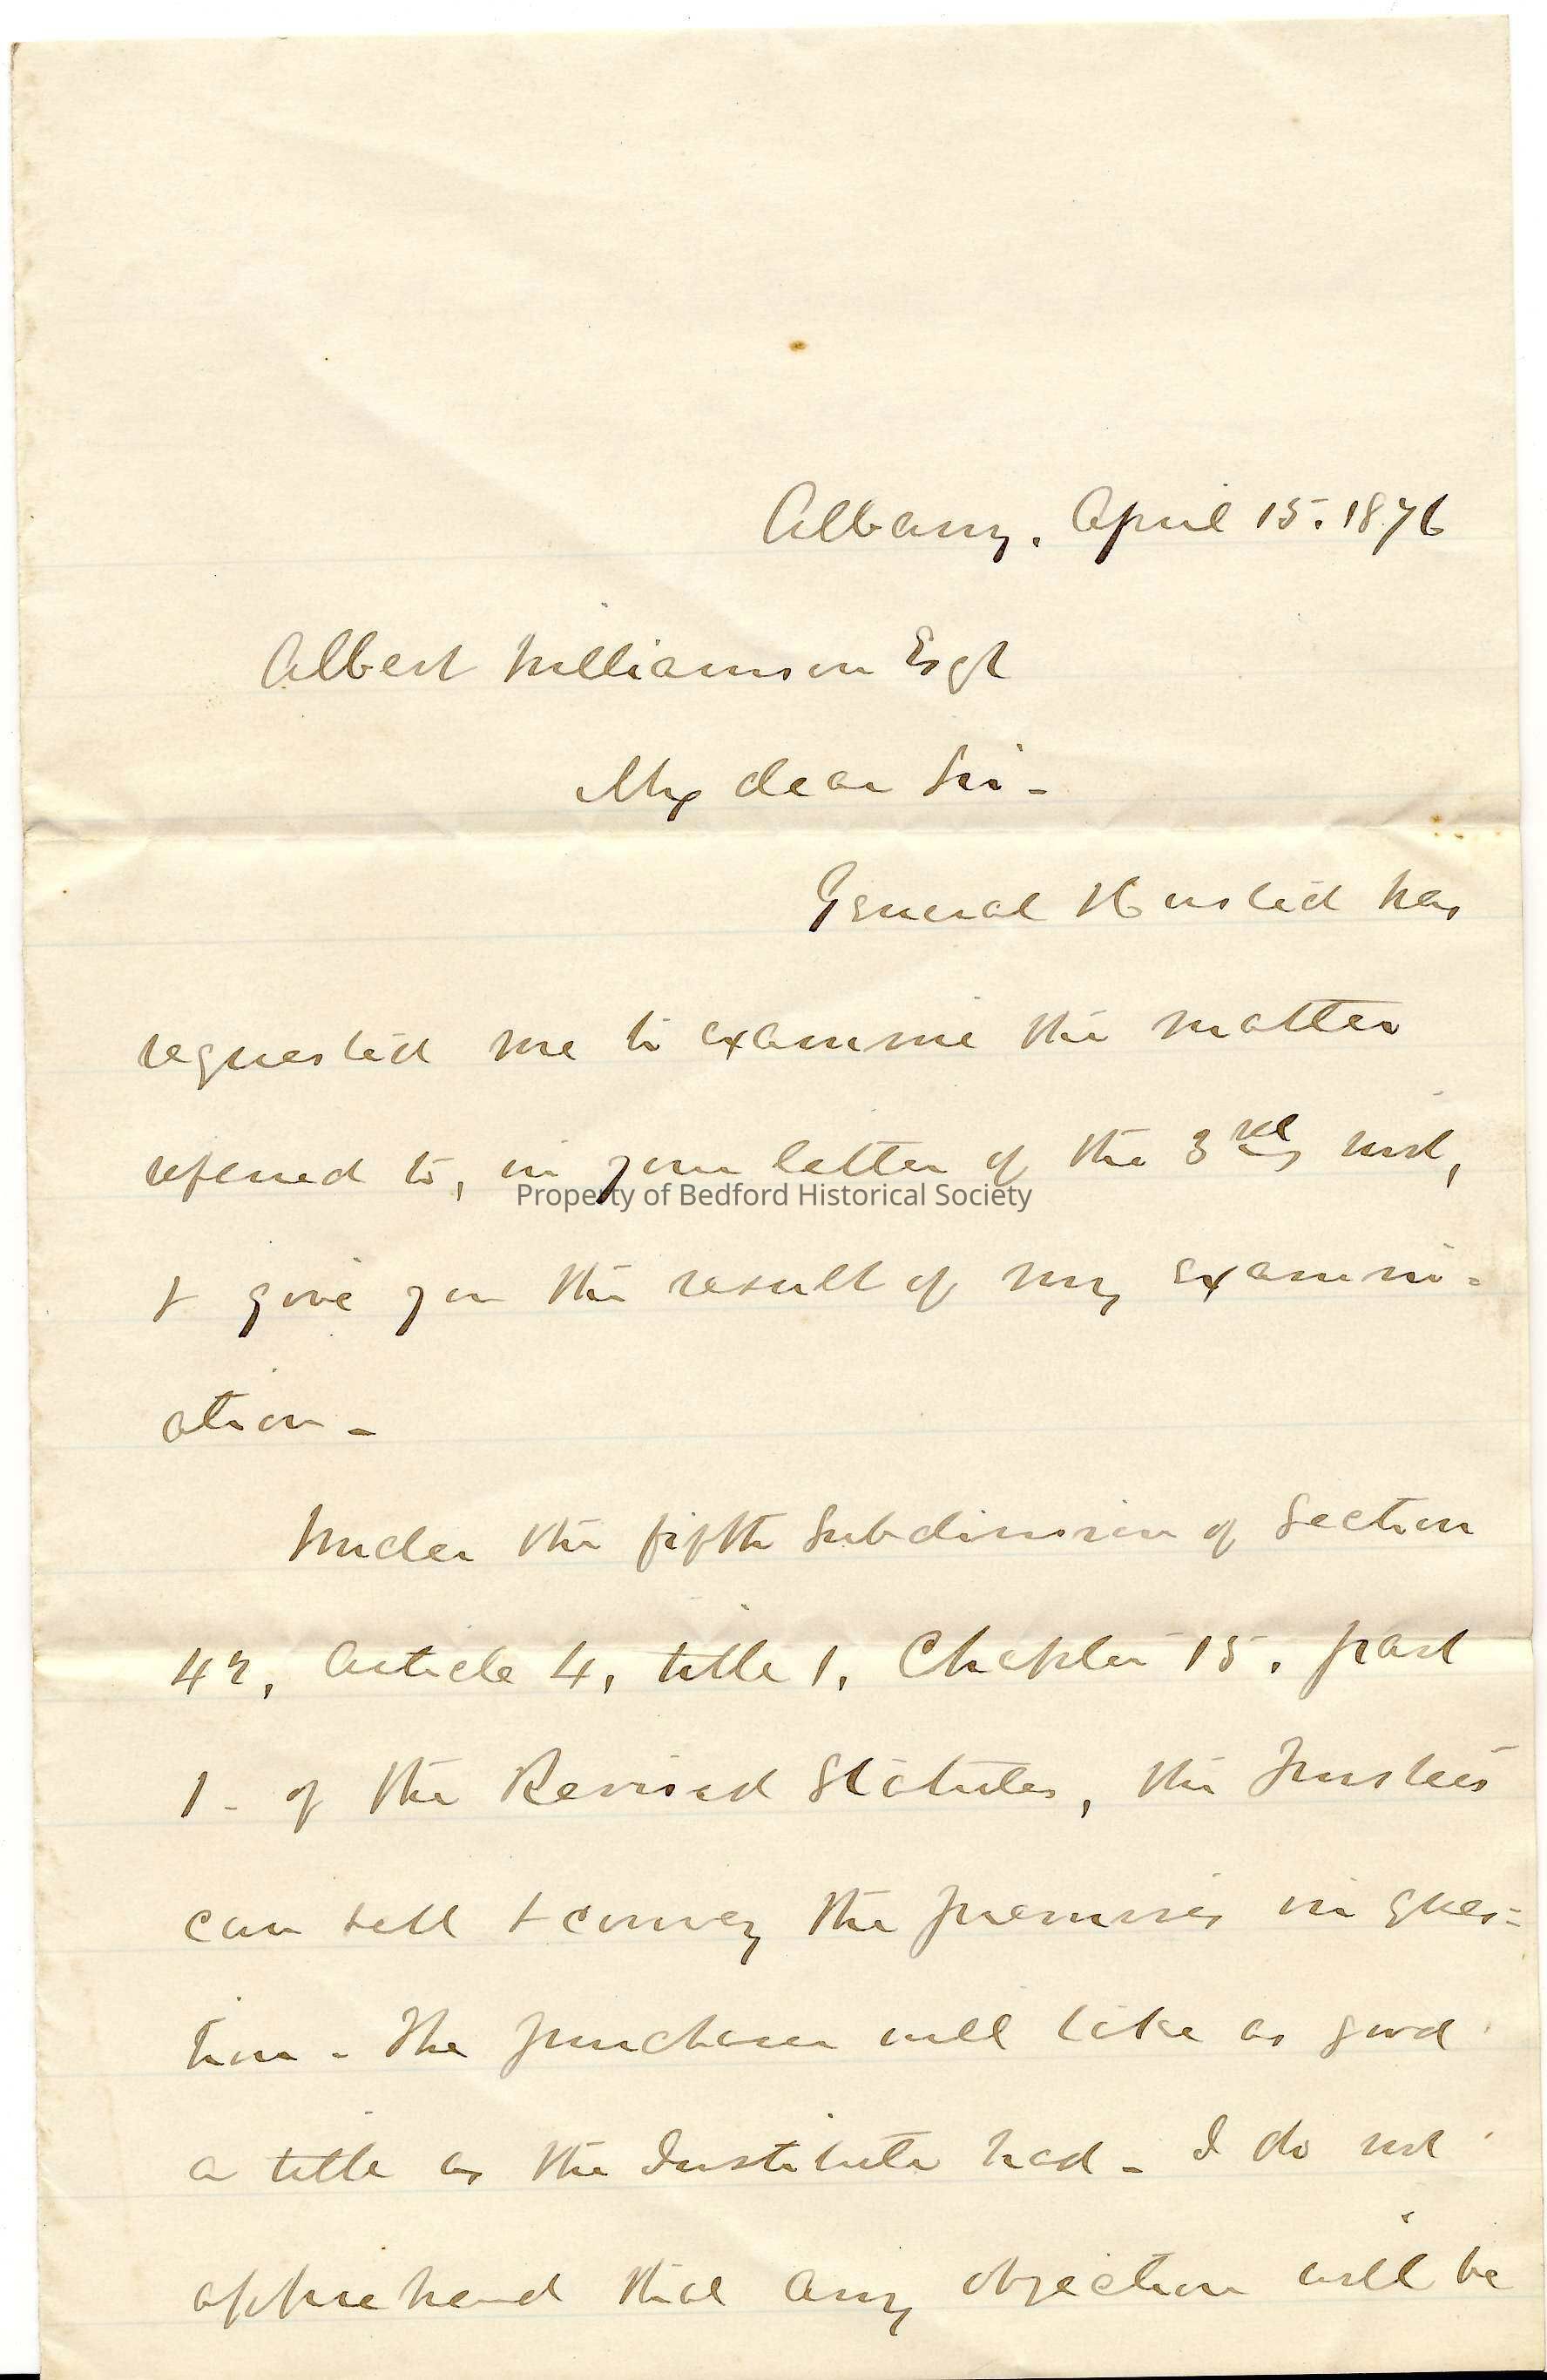 Albany. April 15. 1876
Albert Williamson Esqr
My dear Sir -
General Husted has
requested me to examine the matter
referred to, in your letter of the 3rd inst,
Property of Bedford Historical Society
+ give you the result of my examin-
ation -
Under the fifth Subdivision of Section
42, Article 4, title 1, Chapter 15, part
1 - of the Revised Statutes, the Trustees
can sell + convey the premises in ques=
tion - The purchaser will take as good
a title as the Institute had - I do not
apprehend that any objection will be